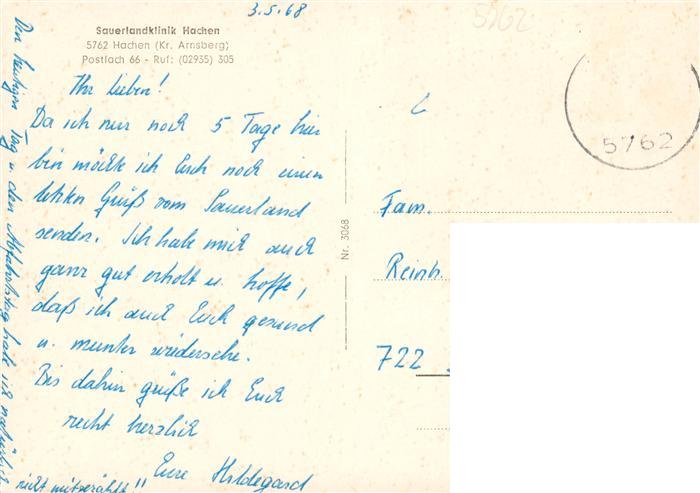 3.5.68
Sauerlandklinik Hachen
5762 Hachen (Kr. Arnsberg)
Postfach 66 - Ruf: (02935) 305
Ihr Lieben!
Da ich nur noch 5 Tage hier
bin möchte ich Euch noch einen
letzten Gruß vom Sauerland
senden. Ich habe mich auch
ganz gut erholt u. hoffe,
daß ich auch Euch gesund
u. munter wiedersehe.
Bis dahin grüße ich Euch
recht herzlich
Eure Hildegard
Den heutigen Tag u. den Abfahrtstag habe ich natürlich
nicht mitgezählt!!
Nr. 3068
5762
5762
Fam.
Reinh.
722